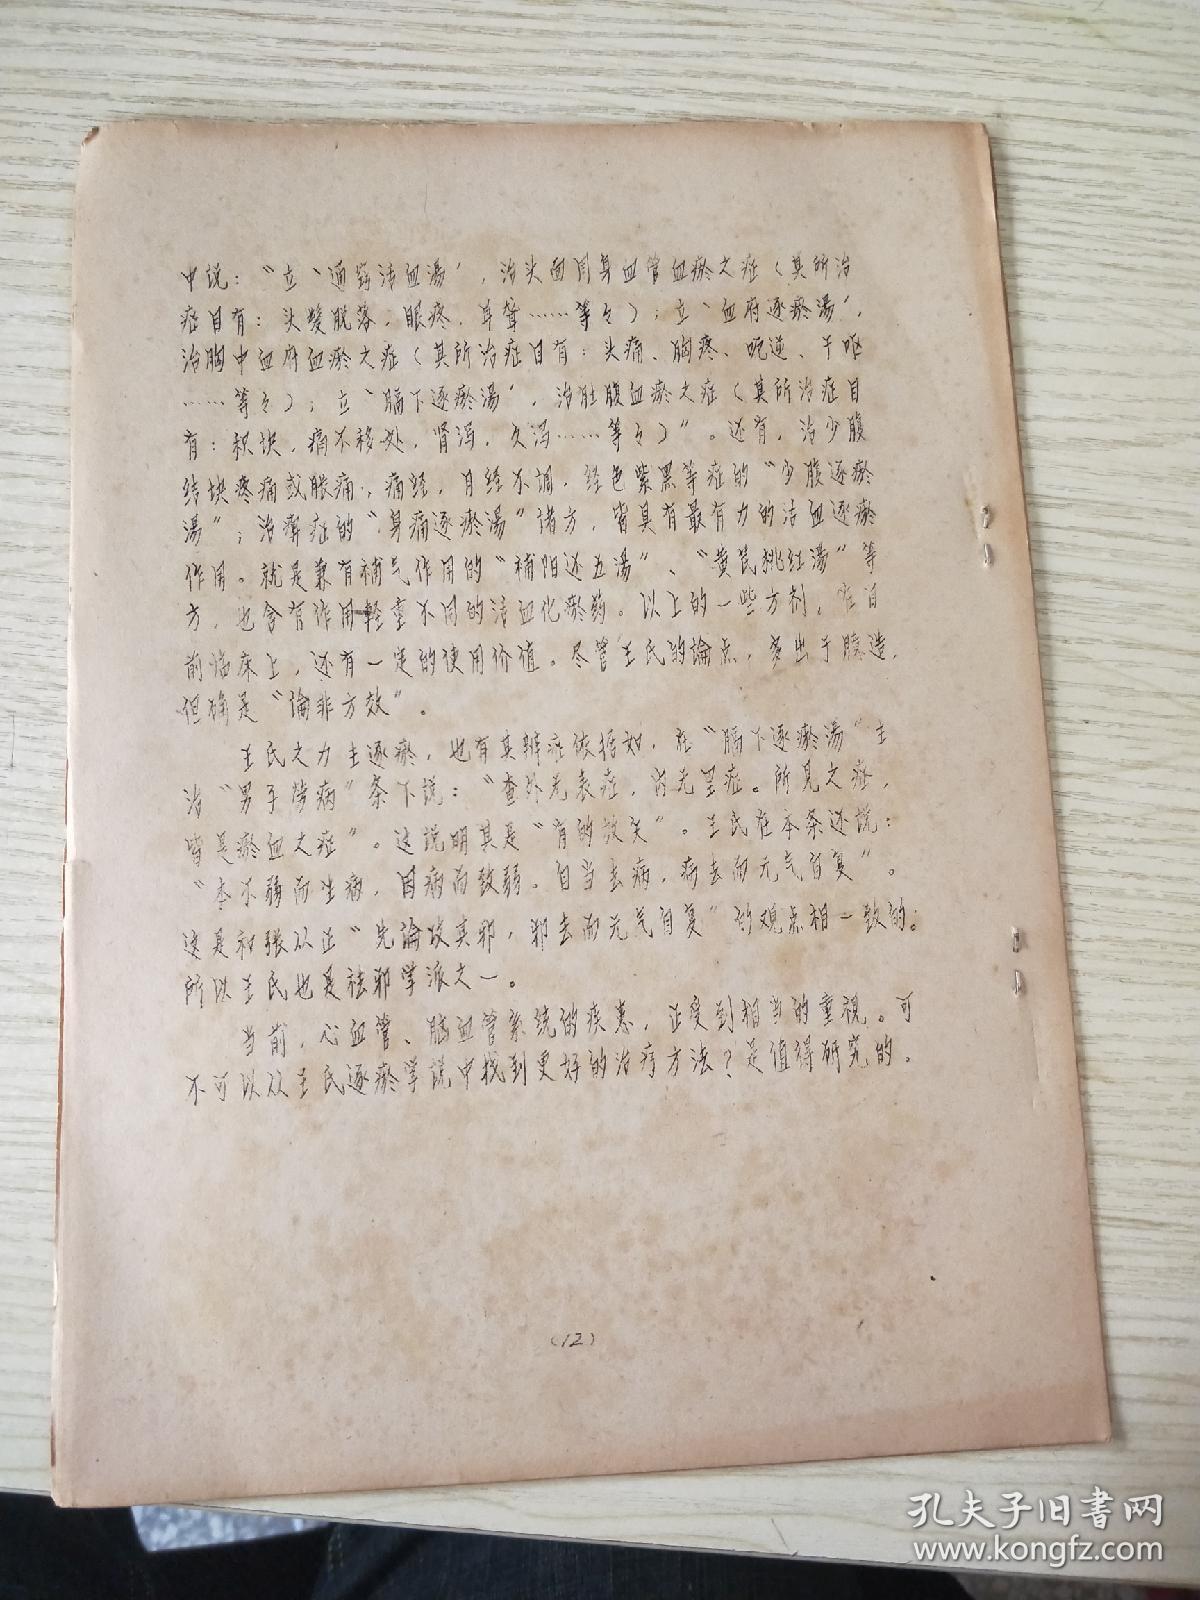 中説：“立‘通窍活血湯’，治头面周身血管血瘀之症（其所治
症目有：头髮脱落，眼疼，耳聋……等々）；立‘血府逐瘀湯’，
治胸中血府血瘀之症（其所治症目有：头痛、胸疼、呃逆、干呕
……等々）；立‘膈下逐瘀湯’，治肚腹血瘀之症（其所治症目
有：积块，痛不移处，肾泻，久泻……等々）”。还有，治少腹
结块疼痛或胀痛，痛经，月经不调，经色紫黑等症的“少腹逐瘀
湯”；治痹症的“身痛逐瘀湯”诸方，皆具有最有力的活血逐瘀
作用。就是兼有補气作用的“補阳还五湯”、“黄芪桃红湯”等
方，也含有作用軽重不同的活血化瘀药。以上的一些方剂，在目
前临床上，还有一定的使用价值。尽管王氏的論点，多出于臆造，
但确是“論非方效”。
王氏之力主逐瘀，也有其辨症依据如，在“膈下逐瘀湯”主
治“男子劳病”条下説：“查外无表症，内无里症。所見之症，
皆是瘀血之症”。这説明其是“有的放矢”。王氏在本条还説：
“本不弱而生病，因病而致弱。自当去病，病去而元气自复”。
这是和張从正“先論攻其邪，邪去而元气自复”的观点相一致的；
所以王氏也是祛邪学派之一。
当前，心血管、脑血管系统的疾患，正受到相当的重視。可
不可以从王氏逐瘀学説中找到更好的治疗方法？是值得研究的。
（12）
孔夫子旧書网
www.kongfz.com